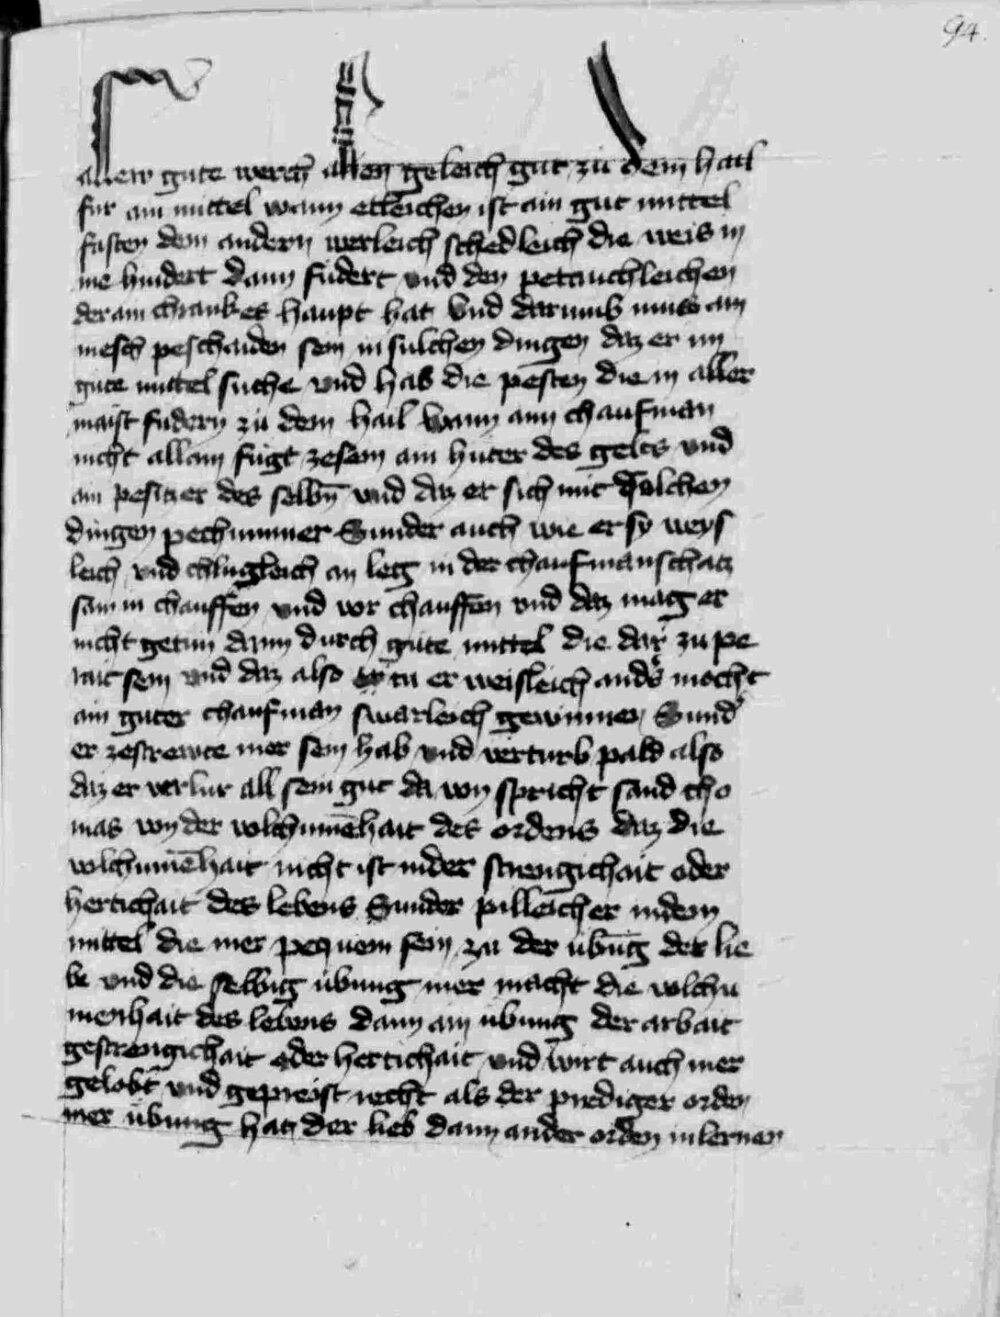 94.
allew gute werch allen geleich gut zu dem hail
fur ain mittel wann etleichen ist ain gut mittel
fasten dem andern werleich schedleich die weis in
me hindert dann fudert und den petruchleichen
der ain chrankes haupt hat und darumb mues ain
mesch peschaiden sein in sulchen dingen daz er im
gute mittel suche und hab die pesten die in aller
maist fudern zu dem hail wann ain chaufman
nicht allain fugt zesein ain huter des gelts und
ain pesitzer des selbn̄ und daz er sich mit solchen
dingen pechummer Sunder auch wie er sy weys
leich und chlugleich an leg in der chaufmanschatz
sam in chauffen und vor chauffen und daz mag er
nicht getun dann durch gute mittel die dar zu pe
rait sein und daz also tu er weisleich anders mocht
ain guter chaufman swarleich gewinnen Sund
er zestrewte mer sein hab und verturb pald also
daz er verlur all sein gut da von spricht sand tho
mas von der volchumēhait des ordens daz die
volchumēhait nicht ist in der strengichait oder
hertichait des lebens Sunder pilleicher in den
mittel die mer pequem sein zu der ubūg der lie
be und die selbig ubung mer macht die volchu
menhait des lebens dann ain ubung der arbait
gestrengichait oder hertichait und wirt auch mer
gelobt und gepreist recht als der prediger orden
mer ubung hat der lieb dann ander orden in lernen